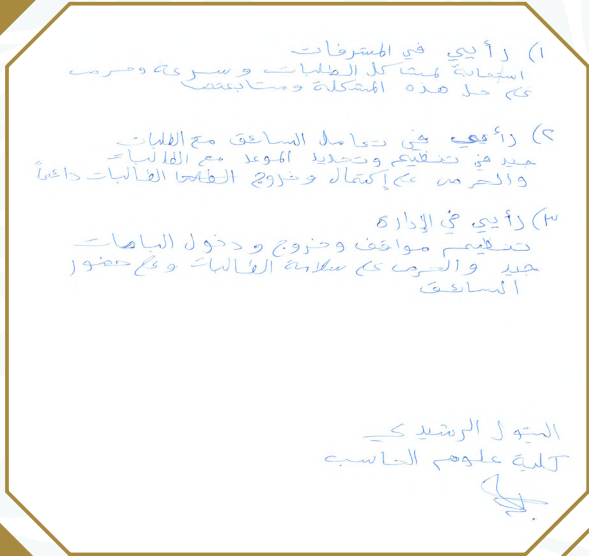 ١) رأيي في المشرفات
استجابة لمشاكل الطلبات وسرعة وحرص
على حل هذه المشكلة ومتابعتها
٢) رأيي في تعامل السائق مع الطلبات
جيد في تنظيم وتحديد الموعد مع الطالبات
والحرص على إكتمال وخروج الطالبات دائماً
٣) رأيي في الإدارة
تنظيم مواقف وخروج ودخول الباصات
جيد والحرص على سلامة الطالبات وعلى حضور
السائق
البتول الرشيدي
كلية علوم الحاسب